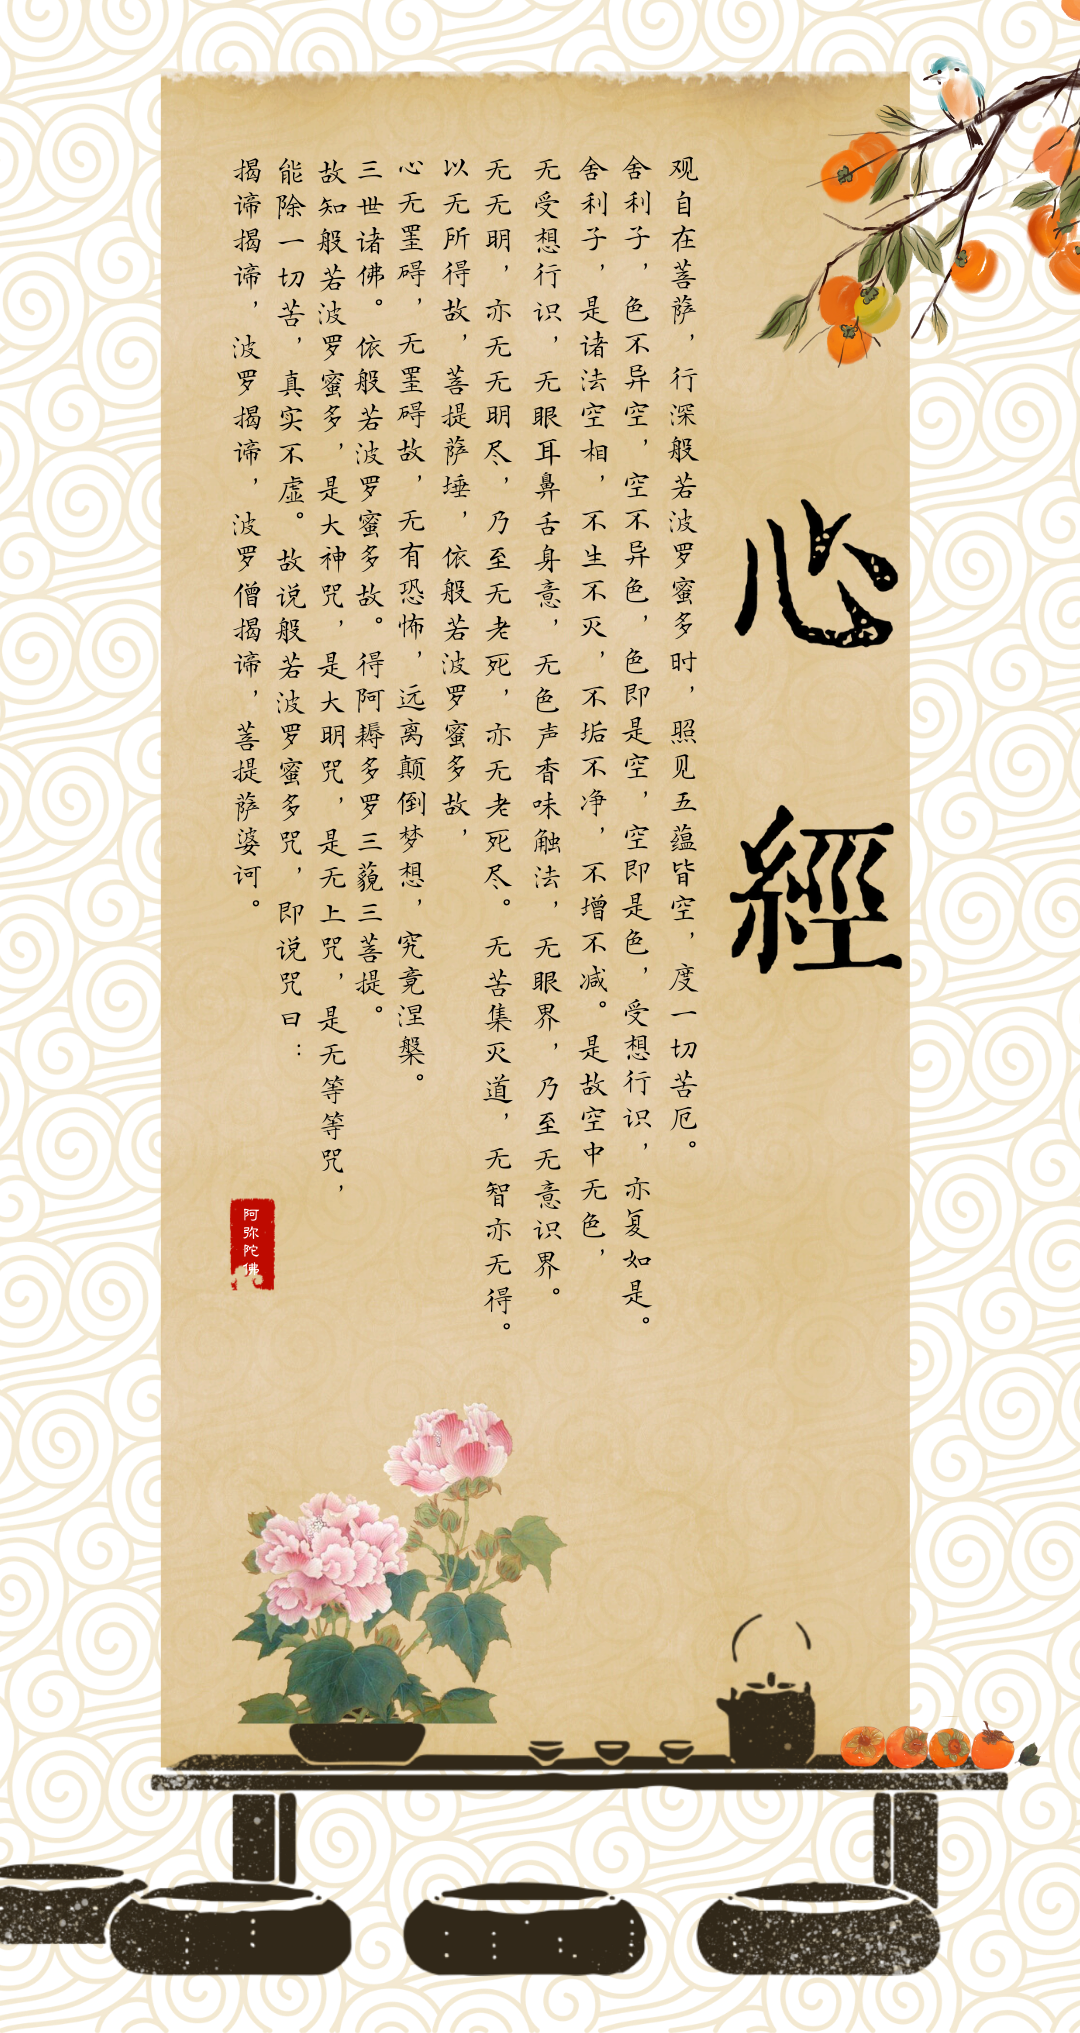 心經
观自在菩萨，行深般若波罗蜜多时，照见五蕴皆空，度一切苦厄。
舍利子，色不异空，空不异色，色即是空，空即是色，受想行识，亦复如是。
舍利子，是诸法空相，不生不灭，不垢不净，不增不减。是故空中无色，
无受想行识，无眼耳鼻舌身意，无色声香味触法，无眼界，乃至无意识界。
无无明，亦无无明尽，乃至无老死，亦无老死尽。无苦集灭道，无智亦无得。
以无所得故，菩提萨埵，依般若波罗蜜多故，
心无罣碍，无罣碍故，无有恐怖，远离颠倒梦想，究竟涅槃。
三世诸佛。依般若波罗蜜多故。得阿耨多罗三藐三菩提。
故知般若波罗蜜多，是大神咒，是大明咒，是无上咒，是无等等咒，
能除一切苦，真实不虚。故说般若波罗蜜多咒，即说咒曰：
揭谛揭谛，波罗揭谛，波罗僧揭谛，菩提萨婆诃。
阿弥陀佛